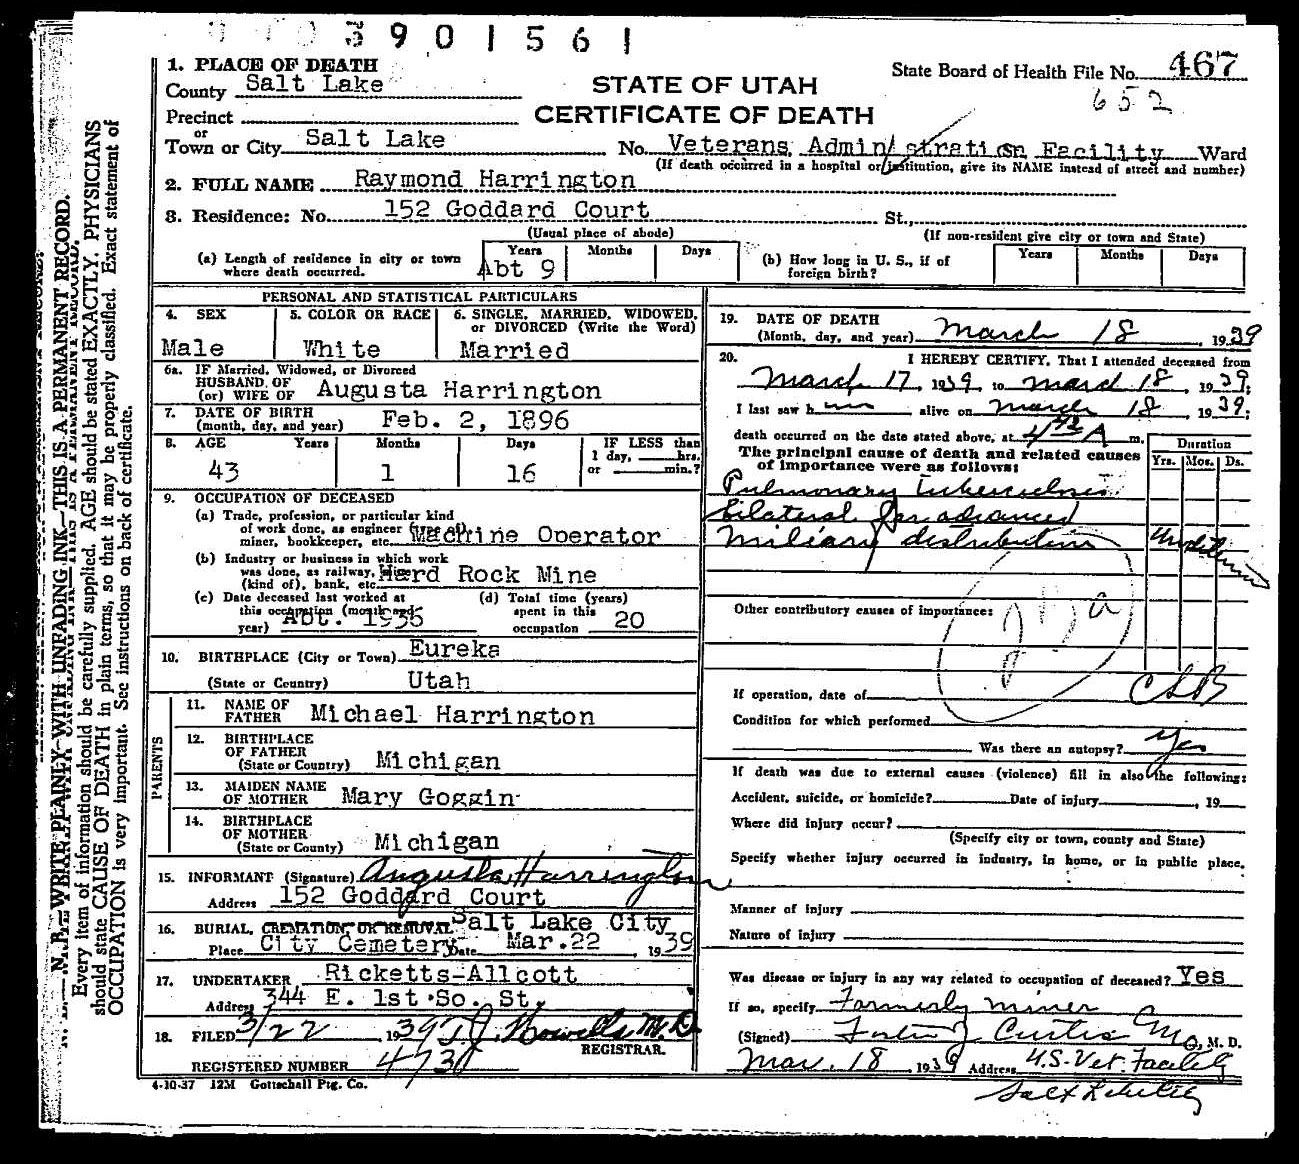 3901561
1. PLACE OF DEATH
County Salt Lake
STATE OF UTAH
CERTIFICATE OF DEATH
State Board of Health File No. 467
652
Precinct
or
Town or City Salt Lake No. Veterans Administration Facility Ward
(If death occurred in a hospital or institution, give its NAME instead of street and number)
2. FULL NAME Raymond Harrington
3. Residence: No. 152 Goddard Court St.,
(Usual place of abode) (If non-resident give city or town and State)
(a) Length of residence in city or town where death occurred. Years Months Days
Abt 9
(b) How long in U. S., if of foreign birth? Years Months Days
PERSONAL AND STATISTICAL PARTICULARS
4. SEX 5. COLOR OR RACE 6. SINGLE, MARRIED, WIDOWED, or DIVORCED (Write the Word)
Male White Married
6a. IF Married, Widowed, or Divorced
HUSBAND OF
(or) WIFE OF Augusta Harrington
7. DATE OF BIRTH
(month, day, and year) Feb. 2, 1896
8. AGE Years Months Days IF LESS than
1 day, hrs.
or min.?
43 1 16
9. OCCUPATION OF DECEASED
(a) Trade, profession, or particular kind
of work done, as engineer
miner, bookkeeper, etc. Machine Operator
(b) Industry or business in which work
was done, as railway,
(kind of), bank, etc. Hard Rock Mine
(c) Date deceased last worked at
this occupation (month and
year) Abt. 1936
(d) Total time (years)
spent in this
occupation 20
10. BIRTHPLACE (City or Town) Eureka
(State or Country) Utah
PARENTS
11. NAME OF
FATHER Michael Harrington
12. BIRTHPLACE
OF FATHER
(State or Country) Michigan
13. MAIDEN NAME
OF MOTHER Mary Goggin
14. BIRTHPLACE
OF MOTHER
(State or Country) Michigan
15. INFORMANT (Signature) Augusta Harrington
Address 152 Goddard Court
16. BURIAL, CREMATION, OR REMOVAL Salt Lake City
Place City Cemetery Date Mar. 22 1939
17. UNDERTAKER Ricketts-Allcott
Address 344 E. 1st So. St.
18. FILED 3/22, 1939 T.J. Howells M.D.
REGISTRAR.
REGISTERED NUMBER 4730
4-10-37 12M Gottschall Ptg. Co.
19. DATE OF DEATH
(Month, day, and year) March 18, 1939
20. I HEREBY CERTIFY, That I attended deceased from
March 17, 1939, to March 18, 1939;
I last saw him alive on March 18, 1939;
death occurred on the date stated above, at 4 42 A m.
The principal cause of death and related causes
of importance were as follows:
Duration
Yrs. Mos. Ds.
Pulmonary tuberculosis
bilateral far advanced
miliary distribution
Other contributory causes of importance:
If operation, date of
CLB
Condition for which performed
Was there an autopsy? Yes
If death was due to external causes (violence) fill in also the following:
Accident, suicide, or homicide? Date of injury , 19
Where did injury occur?
(Specify city or town, county and State)
Specify whether injury occurred in industry, in home, or in public place.
Manner of injury
Nature of injury
Was disease or injury in any way related to occupation of deceased? Yes
If so, specify Formerly miner
(Signed) Foster J Curtis M.D., M. D.
Mar. 18, 1939 Address U.S. Vet. Facility
Salt Lake City
N. B.—WRITE PLAINLY WITH UNFADING INK—THIS IS A PERMANENT RECORD.
Every item of information should be carefully supplied. AGE should be stated EXACTLY. PHYSICIANS
should state CAUSE OF DEATH in plain terms, so that it may be properly classified. Exact statement of
OCCUPATION is very important. See instructions on back of certificate.